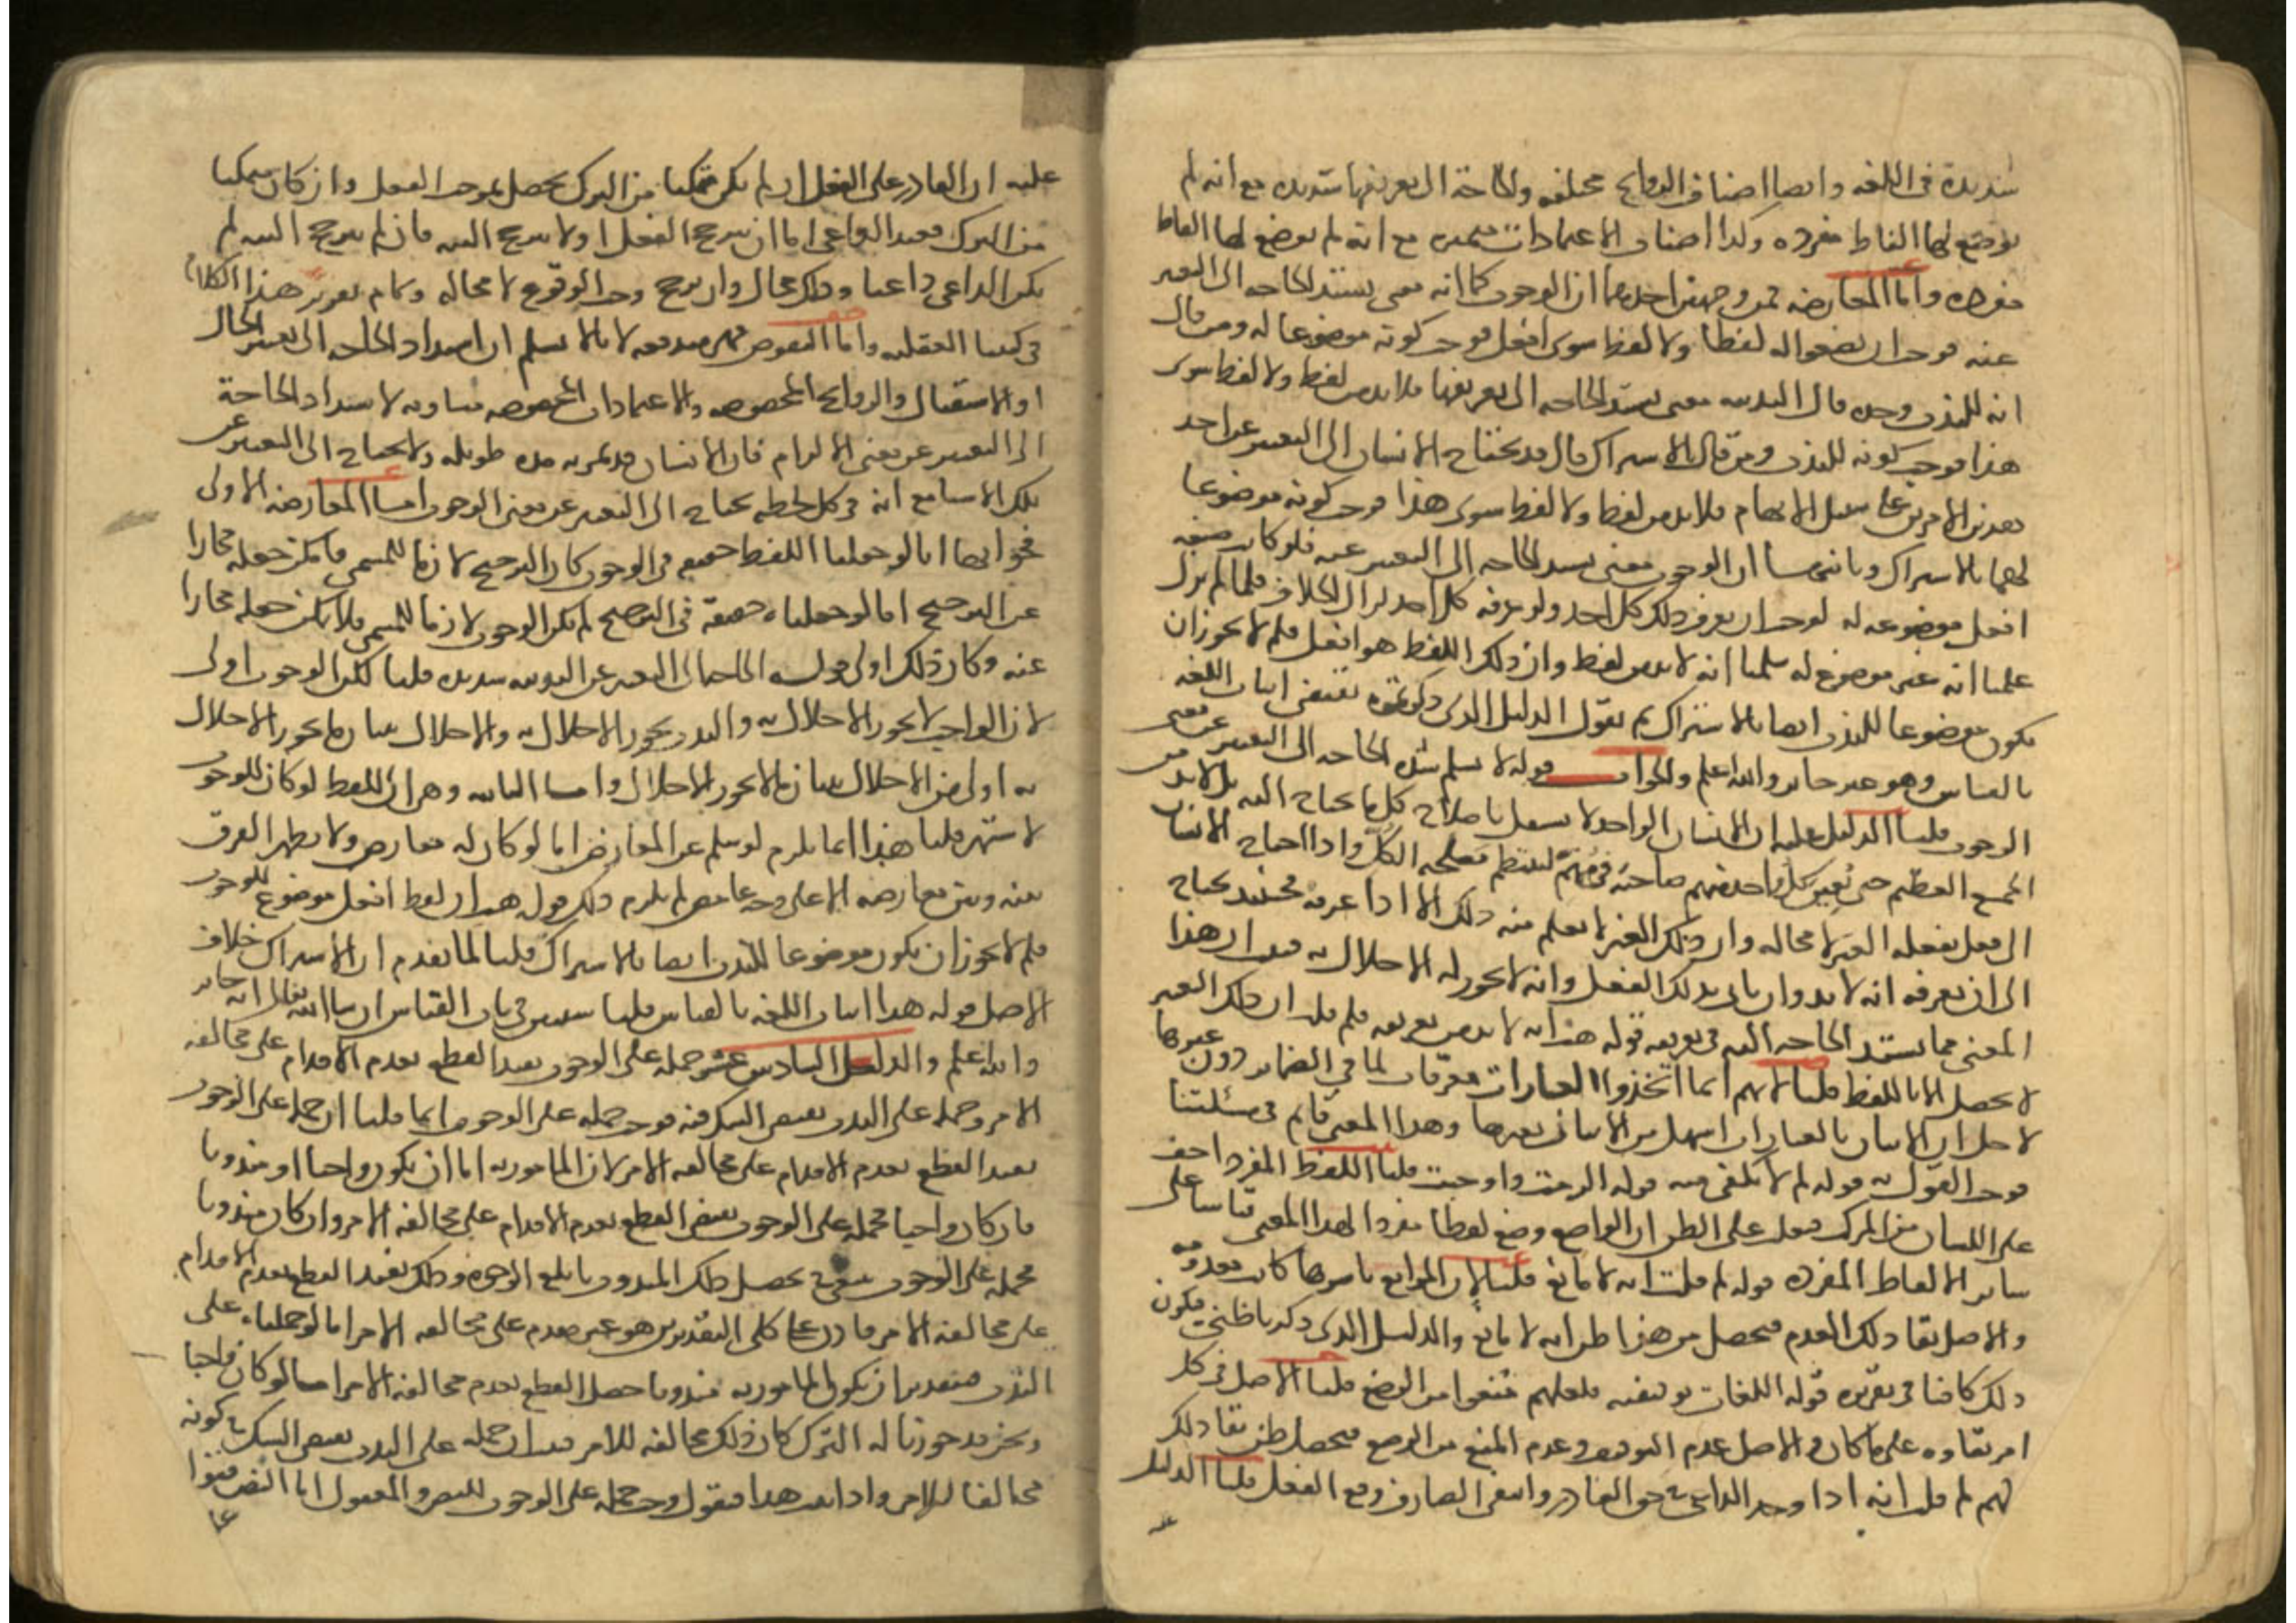 شديدة في اللغة وايضا اصناف الروايح مختلفه والحاجة الى تعريفها شديده مع انه لم
يوضع لها الفاظ مفرده وكذا اصناف الاعتمادات متميزه مع انه لم يوضع لها الفاظ
مفرده واما المعارضه فمن وجهين احدهما ان الوجوب كما انه معنى يشتد الحاجه الى التعبير
عنه فوجب ان يضعوا له لفظا ولا لفظ سوى افعل فوجب كونه موضوعا له ومن قال
انه للندب وجده قال الندبيه معنى يشتد الحاجه الى تعريفها فلا بد من لفظ ولا لفظ سوى
هذا فوجب كونه للندب ومن قال بالاشتراك قال قد يحتاج الانسان الى التعبير عن احد
هذين الامرين على سبيل الابهام فلا بد من لفظ ولا لفظ سوى هذا فوجب كونه موضوعا
لهما بالاشتراك وثانيهما ان الوجوب معنى يشتد الحاجه الى التعبير عنه فلو كانت صيغه
افعل موضوعه له لوجب ان يعرف ذلك كل احد ولو عرفه كل احد لزال الخلاف فلما لم يزل
علمنا انه غير موضوع له سلمنا انه لا بد من لفظ وان ذلك اللفظ هو افعل فلم لا يجوز ان
يكون موضوعا للندب ايضا بالاشتراك ثم نقول الدليل الذي ذكرتموه يقتضي اثبات اللغه
بالقياس وهو غير جايز والله اعلم والجواب قوله لا نسلم شدة الحاجه الى التعبير عن معنى
الوجوب قلنا الدليل عليه ان الانسان الواحد لا يستقل باصلاح كل ما يحتاج اليه بل لا بد من
الجمع العظيم حتى يعين كل واحد منهم صاحبه في مهمه لينتظم مصلحه الكل واذا احتاج الانسان
الى فعل يفعله الغير لا محاله وان ذلك الغير لا يعلم منه ذلك الا اذا عرفه فحينئذ يحتاج
الى ان يعرفه انه لا بد وان ياتي بذلك الفعل وانه لا يجوز له الاخلال به فثبت ان هذا
المعنى مما يشتد الحاجه اليه في تعريفه قوله هب انه لا بد من تعريفه فلم قلت ان ذلك التعريف
لا يحصل الا باللفظ قلنا لانهم انما اتخذوا العبارات معرفات لما في الضماير دون غيرها
لاجل ان الاتيان بالعبارات اسهل من الاتيان بغيرها وهذا المعنى قايم في مسئلتنا
فوجب القول به قوله لم لا يكفي فيه قوله الزمت واوجبت قلنا اللفظ المفرد اخف
على اللسان من المركب فغلب على الظن ان الواضع وضع لفظا مفردا لهذا المعنى قياسا على
ساير الالفاظ المفرده قوله لم قلت انه لا مانع قلنا لان الموانع باسرها كانت معدومه
والاصل بقا ذلك العدم فيحصل من هذا ظن انه لا مانع والدليل الذي ذكرناه ظني فيكون
ذلك كافيا في تقريره قوله اللغات توقيفيه فلعلهم منعوا من الوضع قلنا الاصل في كل
امر بقاوه على ما كان والاصل عدم التوقيف وعدم المنع من الوضع فيحصل ظن بقا ذلك
لهم لم قلت انه اذا وجد الداعي في حق القادر وانتفى الصارف وقع الفعل قلنا الدليل
عليه
عليه ان القادر على الفعل ان لم يكن متمكنا من الترك يحصل بموجب الفعل وان كان متمكنا
من الترك فعند الداعي اما ان يترجح الفعل او لا يترجح البته فان لم يترجح البته لم
يكن الداعي داعيا وذلك محال وان ترجح وجب الوقوع لا محاله وتمام تقرير هذا الكلام
في كتبنا العقليه واما النقوض فهي مندفعه لانا لا نسلم ان اشتداد الحاجه الى تعيين الحال
او الاستقبال والروايح المخصوصه والاعتمادات المخصوصه مساويه لاشتداد الحاجة
الى التعبير عن معنى الالزام فان الانسان قد تمر به مدة طويله ولا يحتاج الى التعبير عن
تلك الاشيا مع انه في كل لحظه يحتاج الى التعبير عن معنى الوجوب اما المعارضه الاولى
فجوابها انا لو جعلنا اللفظ حقيقه في الوجوب كان الترجيح لازما للمسمى فامكن جعله مجازا
عن الترجيح اما لو جعلناه حقيقة في الترجيح لم يكن الوجوب لازما للمسمى فلا يمكن جعله مجازا
عنه وكان ذلك اولى قوله الحاجه الى التعبير عن الندبيه شديده قلنا لكن الوجوب اولى
لان الواجب لا يجوز الاخلال به والندب يجوز الاخلال به والاخلال ببيان ما يجوز الاخلال
به اولى من الاخلال ببيان ما لا يجوز الاخلال واما الثانيه وهي ان اللفظ لو كان للوجوب
لاشتهر قلنا هذا انما يلزم لو سلم عن المعارض اما لو كان له معارض ولا يظهر الفرق
بينه وبين معارضه الا على وجه غامض لم يلزم ذلك قوله هب ان لفظ افعل موضوع للوجوب
فلم لا يجوز ان يكون موضوعا للندب ايضا بالاشتراك قلنا لما تقدم ان الاشتراك خلاف
الاصل قوله هذا اثبات اللغه بالقياس قلنا سنبين في باب القياس ان شا الله تعالى انه جايز
والله اعلم والدليل السادس عشر حمله على الوجوب يفيد القطع بعدم الاقدام على مخالفه
الامر وحمله على الندب يقتضي الشك فيه فوجب حمله على الوجوب انما قلنا ان حمله على الوجوب
يفيد القطع بعدم الاقدام على مخالفه الامر لان المامور به اما ان يكون واجبا او مندوبا
فان كان واجبا فحمله على الوجوب يقتضي القطع بعدم الاقدام على مخالفه الامر وان كان مندوبا
فحمله على الوجوب يحصل ذلك المندوب بابلغ الوجوه وذلك يفيد القطع بعدم الاقدام
على مخالفه الامر فاذن على كلى التقديرين هو غير مقدم على مخالفه الامر اما لو حملناه على
الندب فبتقدير ان يكون المامور به مندوبا حصل القطع بعدم مخالفه الامر اما لو كان واجبا
ونحن قد جوزنا له الترك كان ذلك مخالفه للامر فثبت ان حمله على الندب يقتضي الشك في كونه
مخالفا للامر واذا ثبت هذا فنقول وجب حمله على الوجوب للنص والمعقول اما النص فقوله